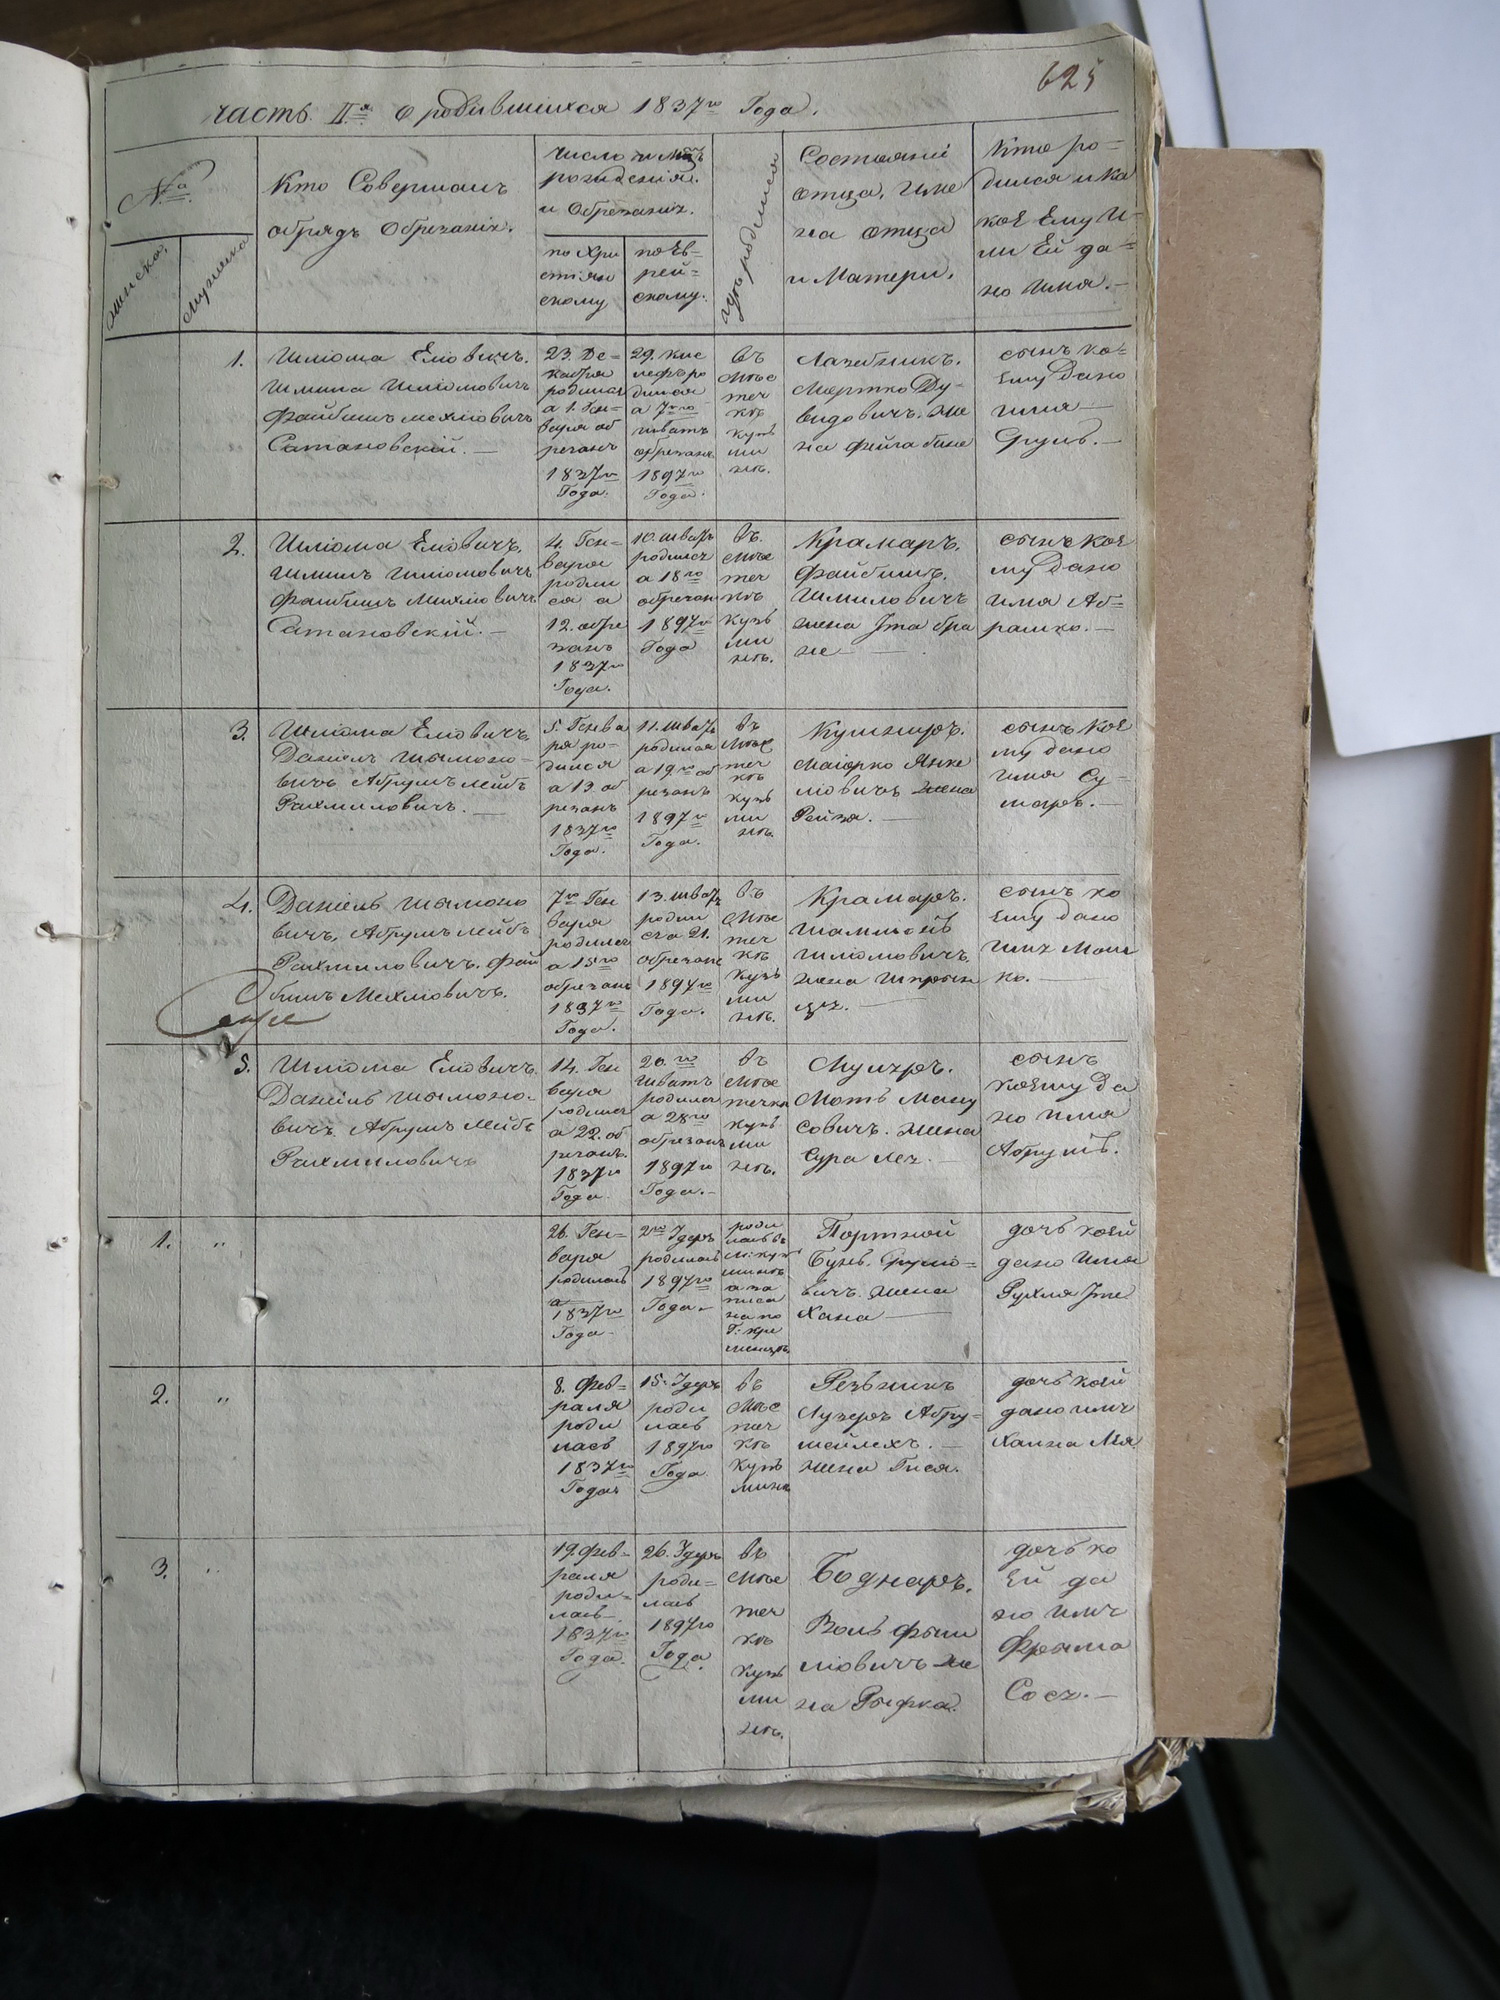 625
часть IIя о родившихся 1837го Года.
№а
женска,
мужеска
Кто Совершалъ
обрядъ Обрезанія.
число и мцъ
рождения.
и Обрезания.
по Хри
стіян
скому
по Ев-
рей-
скому.
гдѣ родился
Состояніе
отца, име
на отца
и Матери.
Кто ро-
дился и ка
кое Ему и-
ли Ей да-
но имя.—
1.
Шліома Еліовичъ.
Шмила Шліомовичъ
Файбишъ Мехліовичъ
Сатановскій. —
23. Де-
кабря
родился
а 1. Ген-
варя об
резанъ
1837го
Года.
29. кис
лефъ ро
дился
а 7го
шватъ
обрезанъ
1897го
Года.
въ
Мѣс
теч
кѣ
кузь
ми
нѣ.
Лазебникъ.
Мортко Ду-
видовичъ. же
на фейга бине
сынъ ко-
ему дано
имя —
Срулъ. —
2.
Шліома Еліовичъ,
Шмилъ Шліомовичъ
Файбишъ Мехліовичъ
Сатановскій. —
4. Ген-
варя
родил
ся а
12. обре
занъ
1837го
Года.
10. шватъ
родился
а 18го
обрезанъ
1897го
Года
въ.
Мѣс
теч
кѣ
кузь
ми
нѣ.
Крамаръ.
Файбишъ.
Шмиловичъ
жена Ита бра
не —
сынъ кое
му дано
имя Аб-
рамко. —
3.
Шліома Еліовичъ.
Даніель Шымоно-
вичъ Абрумъ лейбъ
Рахмиловичъ. —
5. Генва
ря ро-
дился
а 13 об
резанъ
1837го
Года.
11. шватъ
родился
а 19го об
резанъ
1897го
Года.
въ
Мѣс
теч
кѣ
кузь
ми
нѣ.
Кушниръ.
Маіорко Янке
ліовичъ жена
Рейза. —
сынъ кое
му дано
имя Су-
меръ. —
4.
Даніель Шымоно
вичъ, Абрумъ лейбъ
Рахмиловичъ. Фай
бишъ Мехліовичъ.
7го Ген
варя
родился
а 15го
обрезанъ
1837го
Года.
13. шватъ
родил
ся а 21.
обрезанъ
1897го
Года.
въ
Мѣс
теч
кѣ
кузь
ми
нѣ.
Крамаръ.
Шліомовичъ.
жена Шпрын
ця. —
сынъ ко
ему дано
имя Мош
ко. —
5.
Шліома Еліовичъ.
Даніель Шымоно-
вичъ Абрумъ лейбъ
Рахмиловичъ
14. Ген
варя
родился
а 22. об
резанъ.
1837го
Года.
20.го
Шватъ
родился
а 28го
обрезанъ
1897го
Года.—
въ
Мѣс
течкѣ
кузь
ми
нѣ.
Муляръ.
МотьМану
совичъ. жена
Сура лея. —
сынъ
коему да
но имя
Абрумъ.
1. "
26. Ген-
варя
родилась
1837го
Года.
2го Удеръ
родилась
1897го
Года.
роди
лась въ
м: кузь
минѣ
а за
писа
на по
Портной
Бунь. Срулио-
вичъ. жена
Хана —
дочь коей
дано имя
Рухля Ите
2. "
8. Фев-
раля
роди
лась
1837го
Года
15. Удеръ
роди
лась
1897го
Года
въ
Мѣс
теч
кѣ
кузь
минѣ
Резникъ
Лузеръ Абру-
жена Гися.
дочь коей
дано имя
Ханна Лея
3. "
19. Фев-
раля
роди-
лась —
1837го
Года.
26. Удеръ
роди-
лась
1897го
Года.
въ
Мѣс
теч
кѣ
кузь
ми
нѣ.
Боднаръ.
ліовичъ же
на Рыфка.
дочь ко
ей да
но имя
Фрыма
Сося. —